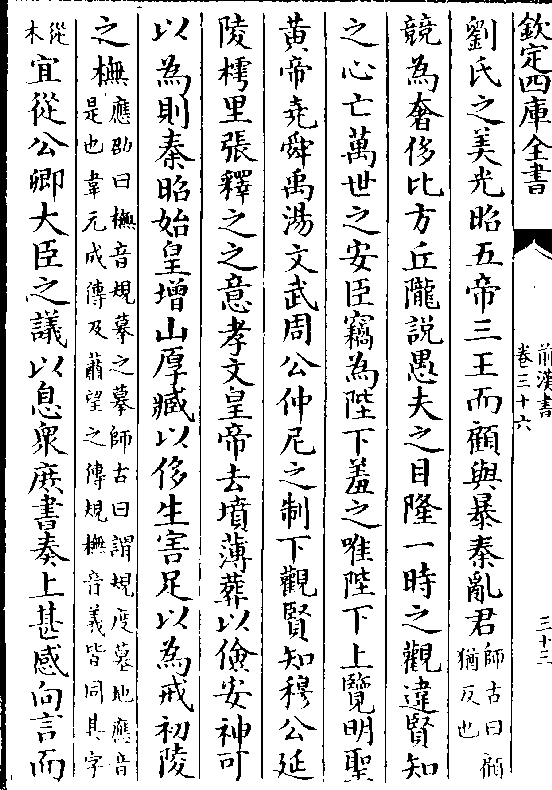 欽定四庫全書
前漢書
卷三十六
三十三
劉氏之美光昭五帝三王而顧與暴秦亂君師古曰顧猶反也
競為奢侈比方丘隴說愚夫之目隆一時之觀違賢知
之心亡萬世之安臣竊為陛下羞之唯陛下上覽明聖
黃帝堯舜禹湯文武周公仲尼之制下觀賢知穆公延
陵樗里張釋之之意孝文皇帝去墳薄葬以儉安神可
以為則秦昭始皇增山厚臧以侈生害足以為戒初陵
之橅應劭曰橅音規摹之摹師古曰謂規度墓地應音是也韋元成傳及蕭望之傳規橅音義皆同其字
從木宜從公卿大臣之議以息衆庶書奏上甚感向言而